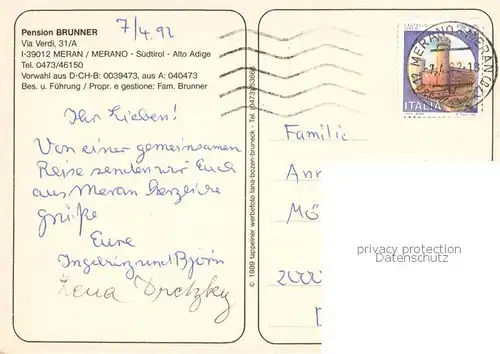 Pension BRUNNER
Via Verdi, 31/A
I-39012 MERAN / MERANO - Südtirol - Alto Adige
Tel. 0473/46150
Vorwahl aus D-CH-B: 0039473, aus A: 040473
Bes. u. Führung / Propr. e gestione: Fam. Brunner
7/4.92
Ihr Lieben!
Von einer gemeinsamen
Reise senden wir Euch
aus Meran herzliche
Grüße
Eure
und Björn
Lena
© 1989 tappeiner werbefoto lana-bozen-bruneck - Tel. 0473/53666
MERANO MERAN
ITALIA
Familie
Ann
Mö
privacy protection
Datenschutz